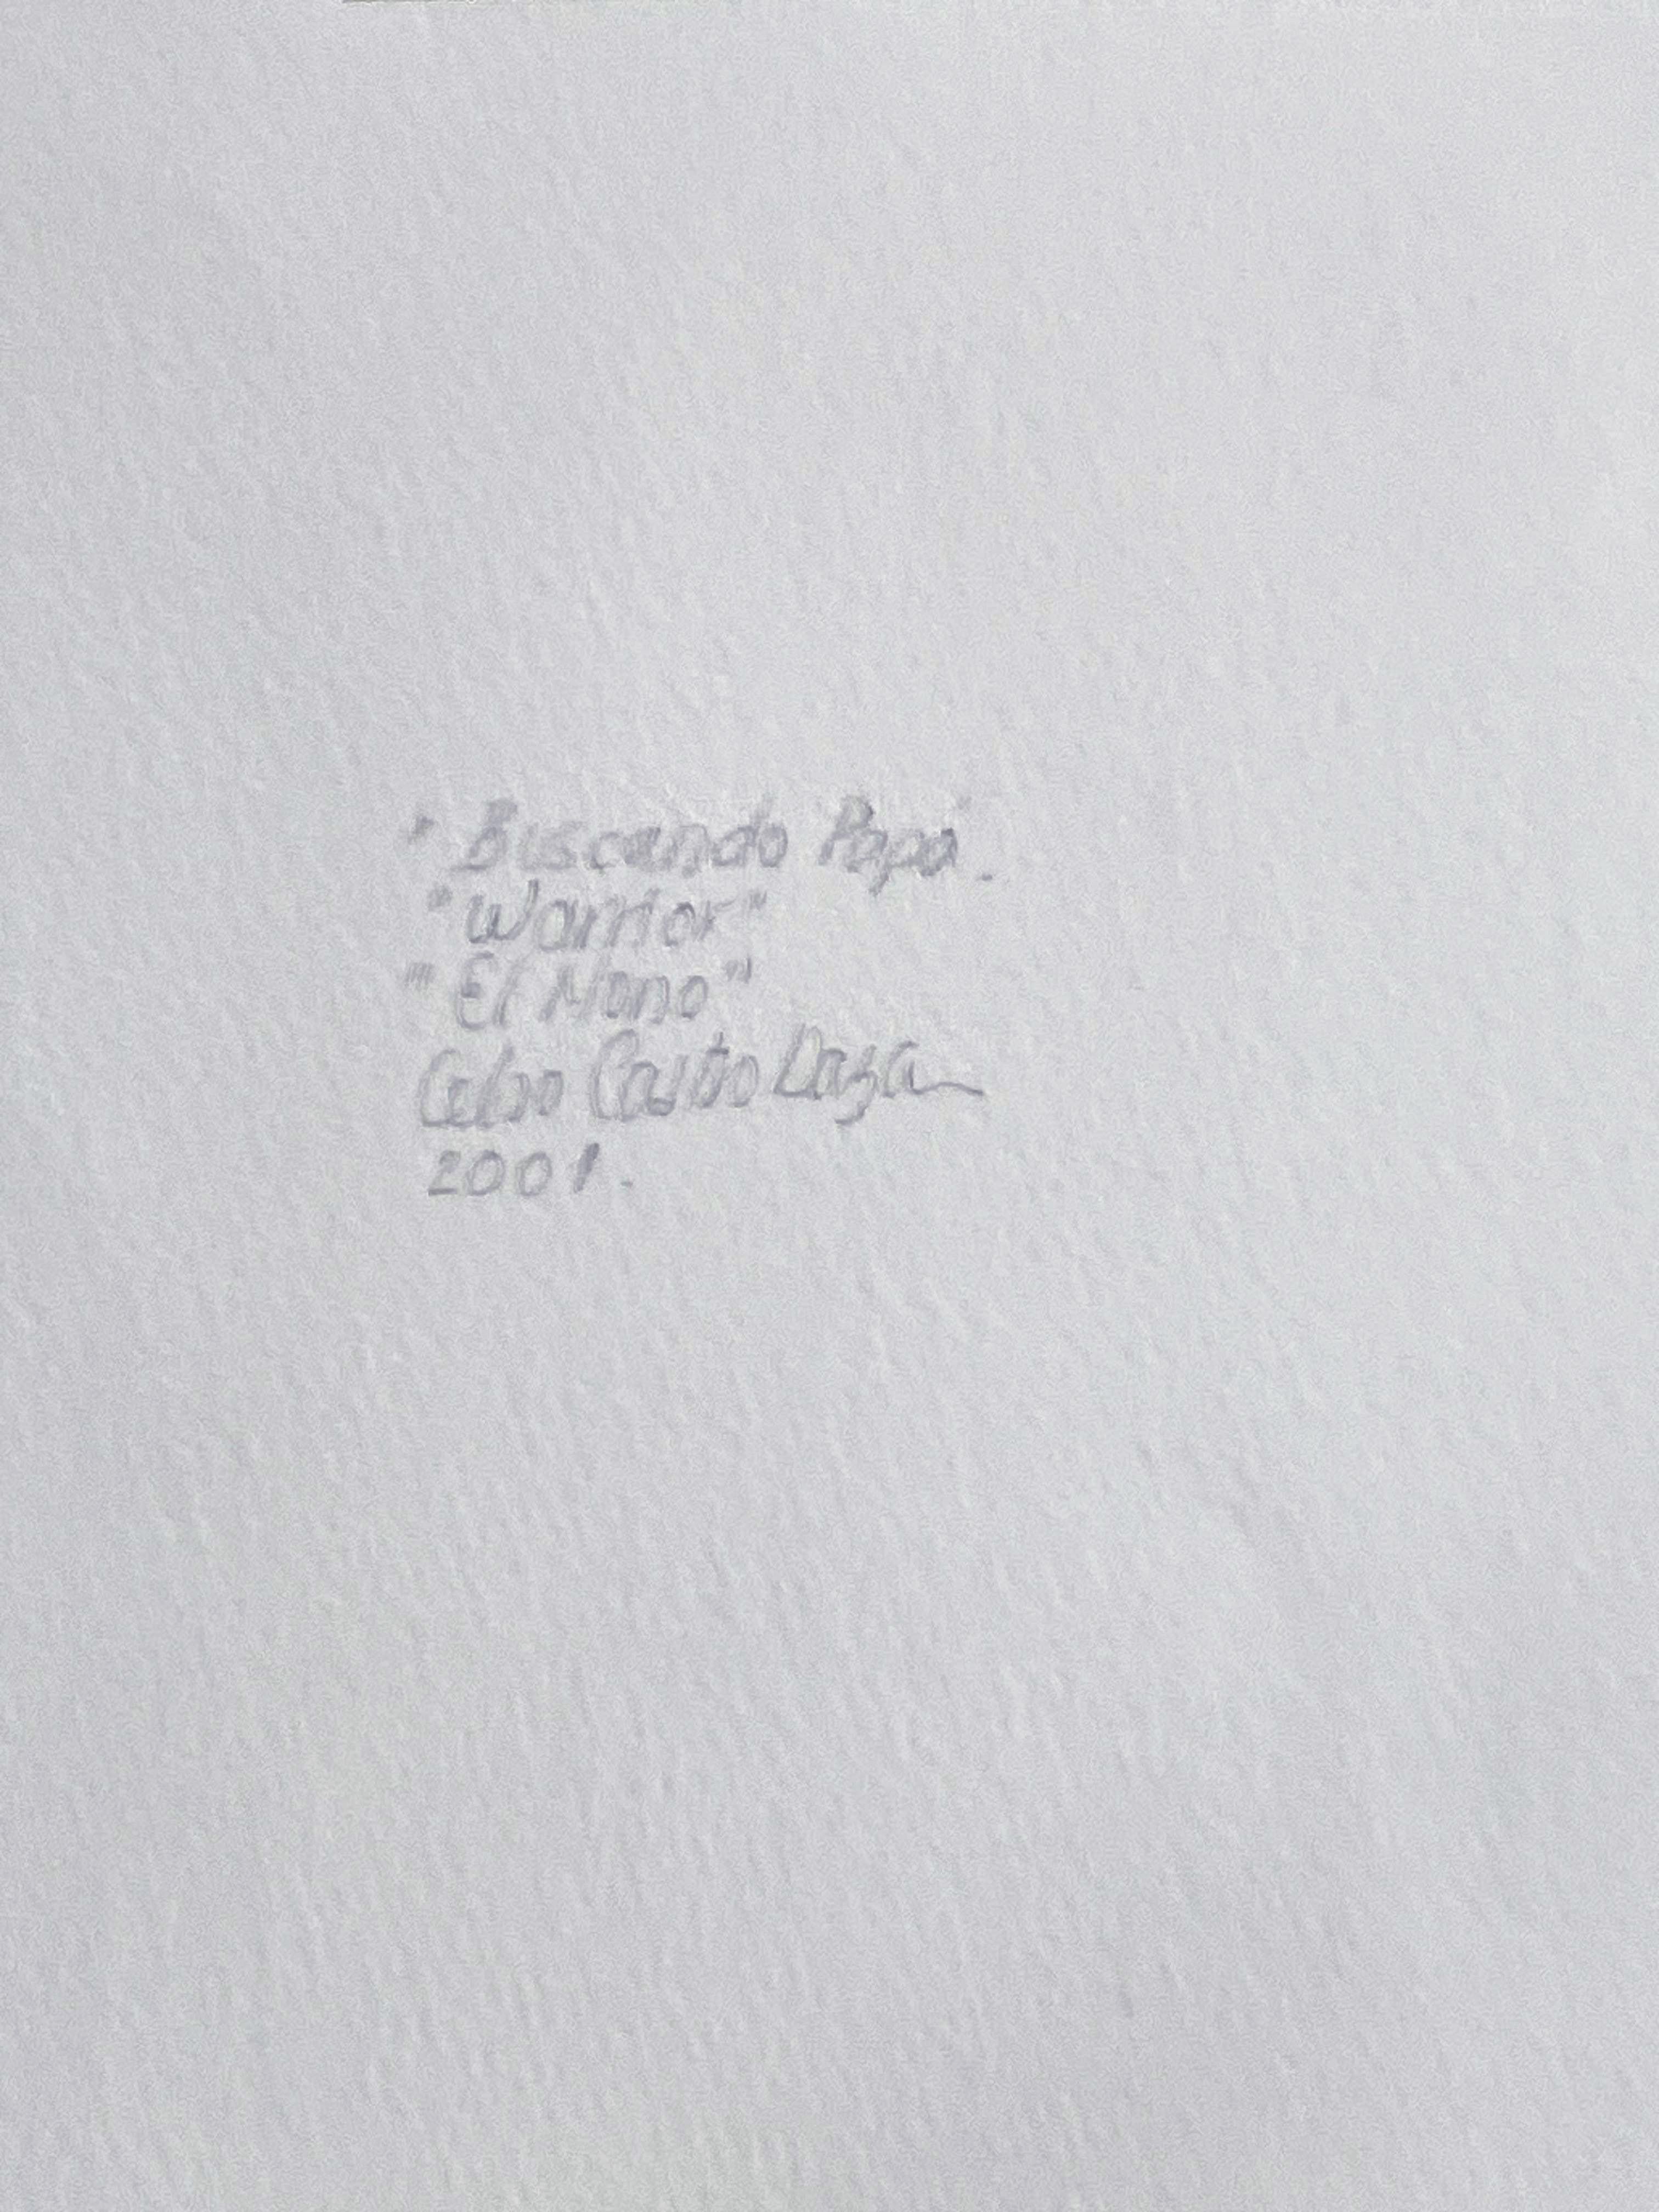 " Buscando Papá.
"Warrior"
"El Mono"
Celso Castro Daza
2001.